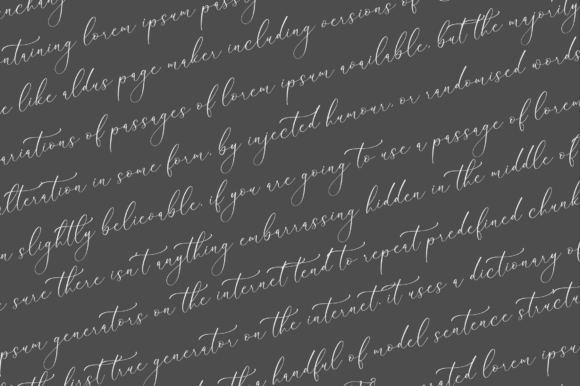 containing lorem ipsum passa
e like aldus page maker including versions of
ariations of passages of lorem ipsum available, but the majority
alteration in some form, by injected humour, or randomised words
n slightly believable. if you are going to use a passage of lorem
e sure there isn't anything embarrassing hidden in the middle of
psum generators on the internet tend to repeat predefined chunk
the first true generator on the internet. it uses a dictionary of
a handful of model sentence structu
rated lorem ipsum